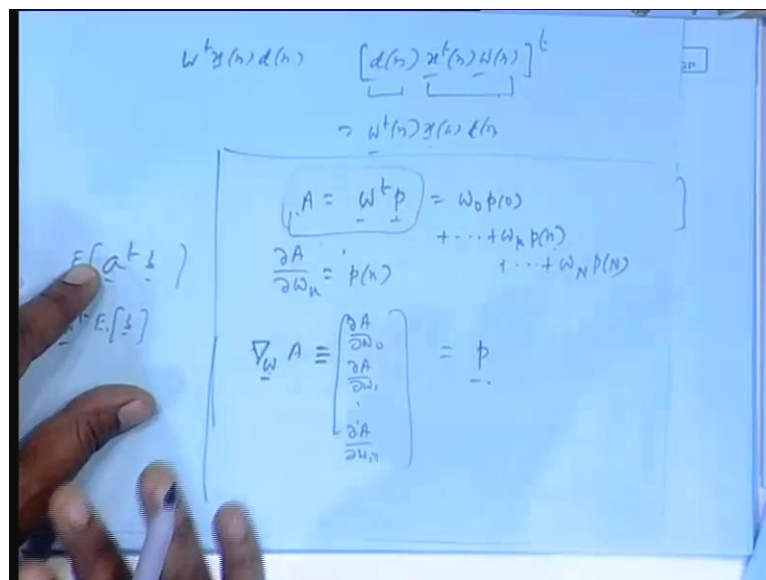 w^t x(n) d(n) [d(n) x^t(n) w(n)]^t
= w^t(n) x(n) d(n)
A = w^t p = w_0 p(0)
+ ... + w_k p(k)
+ ... + w_N p(N)
E[a^t b]
∂A/∂w_k = p(k)
E[b]
∇_w A ≡ [∂A/∂w_0 ∂A/∂w_1 ⋮ ∂A/∂w_N] = p